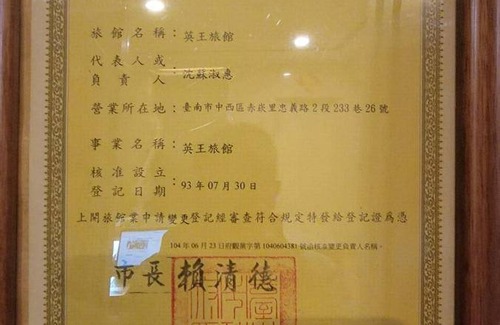 旅館名稱：英王旅館
代表人或
負責人：沈蘇淑惠
營業所在地：臺南市中西區赤崁里忠義路2段233巷26號
事業名稱：英王旅館
核准設立
登記日期：93年07月30日
上開旅館業申請變更登記經審查符合規定特發給登記證為憑
104年06月23日府觀業字第1040604381號函核准變更負責人名稱。
市長賴清德